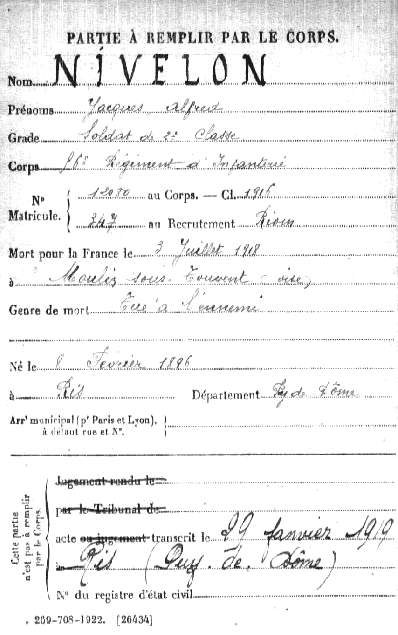 PARTIE À REMPLIR PAR LE CORPS.
Nom NIVELON
Prénoms Jacques Alfred
Grade Soldat de 2e Classe
Corps 96e Régiment d'Infanterie
No Matricule. { 12080 au Corps. — Cl. 1916
347 au Recrutement Riom
Mort pour la France le 3 Juillet 1918
à Moulin sous Touvent - oise
Genre de mort Tué à l'ennemi
Né le 8 Fevrier 1896
à Ris Département Puy de Dôme
Arrt municipal (pr Paris et Lyon),
à défaut rue et No.
Cette partie n'est pas à remplir par le Corps.
Jugement rendu le
par le Tribunal de
acte ou jugement transcrit le 29 Janvier 1919
à Ris (Puy. de. Dôme)
No du registre d'état civil
. 259-708-1922. [26434]